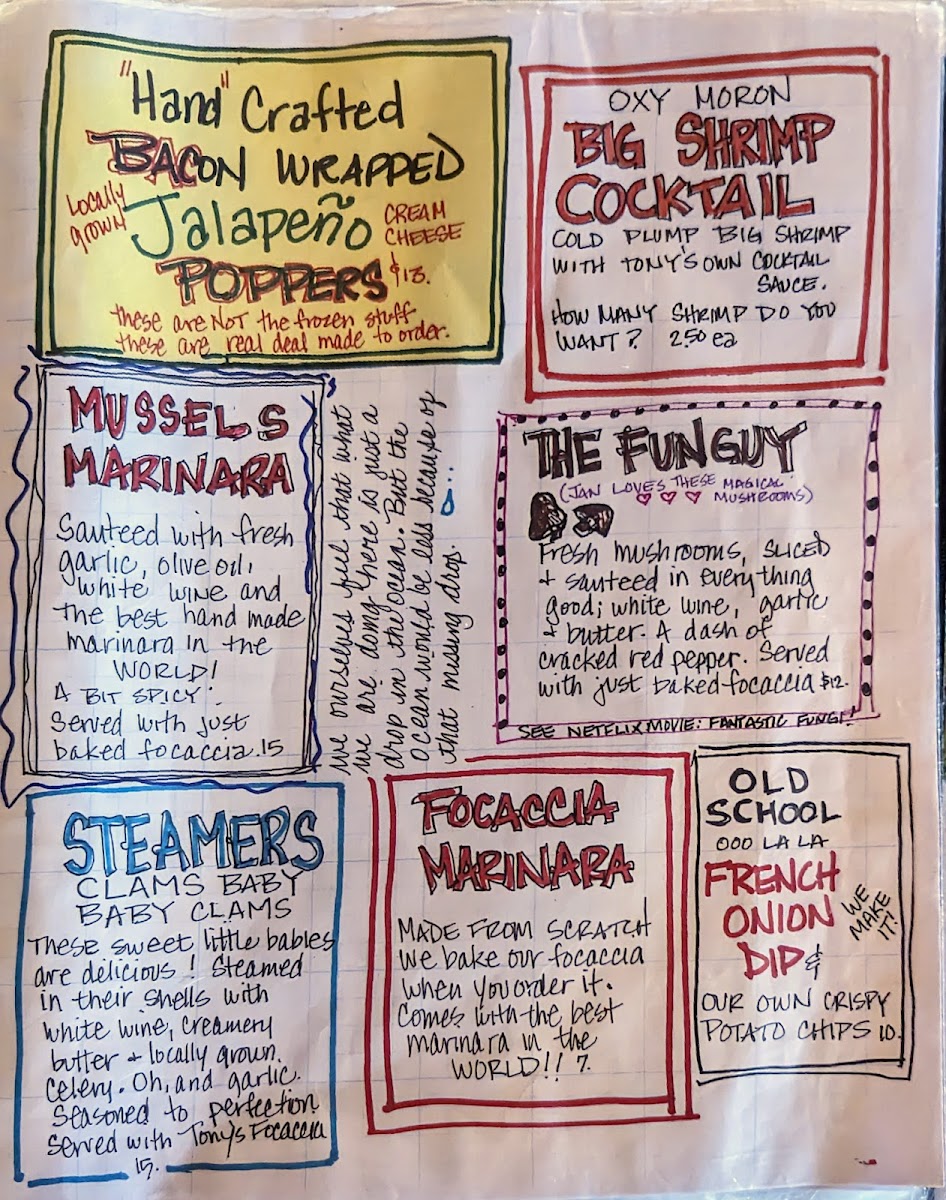 "Hand" Crafted
BACON WRAPPED
Locally
grown
Jalapeño
CREAM
CHEESE
POPPERS $13.
these are NOT the frozen stuff
these are real deal made to order.
OXY MORON
BIG SHRIMP
COCKTAIL
COLD PLUMP BIG SHRIMP
WITH TONY'S OWN COCKTAIL
SAUCE.
HOW MANY SHRIMP DO YOU
WANT? 2.50 ea
MUSSELS
MARINARA
Sauteed with fresh
garlic, olive oil,
white wine and
the best hand made
marinara in the
WORLD!
A BIT SPICY:
Served with just
baked focaccia. 15
we ourselves feel that what
we are doing there is just a
drop in the ocean. But the
ocean would be less because of
that missing drop. ...
THE FUNGUY
(JAN LOVES THESE MAGICAL
♡ ♡ ♡ MUSHROOMS)
Fresh mushrooms, SLICED
+ sauteed in everything
good; white wine, garlic
+ butter. A dash of
cracked red pepper. Served
with just baked focaccia $12.
SEE NETFLIX MOVIE: FANTASTIC FUNGI!
STEAMERS
CLAMS BABY
BABY CLAMS
These sweet little babies
are delicious! Steamed
in their shells with
white wine, creamery
butter + locally grown
celery. Oh, and garlic.
Seasoned to perfection
Served with Tony's Focaccia
15.
FOCACCIA
MARINARA
MADE FROM SCRATCH
We bake our focaccia
when you order it.
Comes with the best
marinara in the
WORLD!! 7.
OLD
SCHOOL
OOO LA LA
FRENCH
ONION
DIP &
WE
MAKE
IT!
OUR OWN CRISPY
POTATO CHIPS 10.